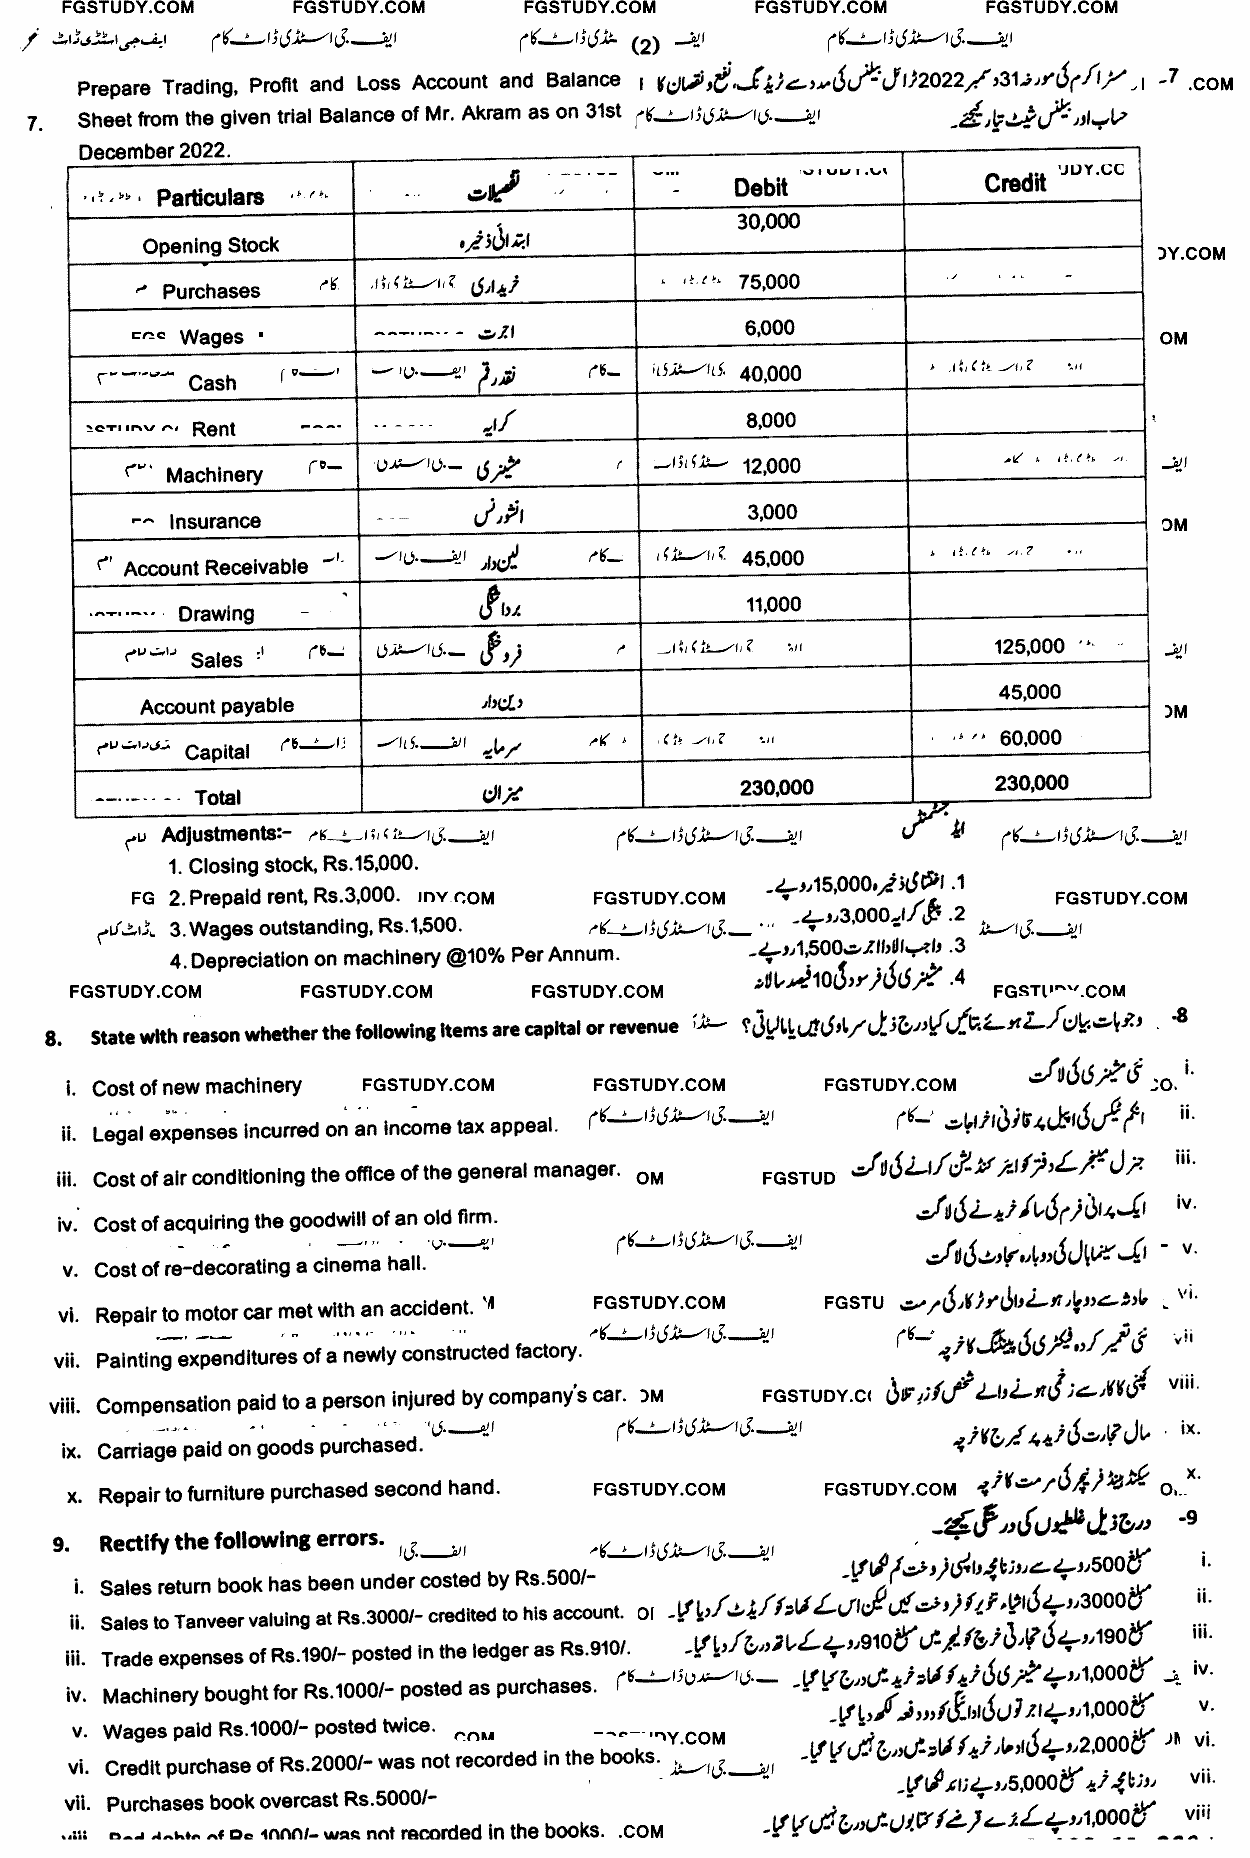 FGSTUDY.COM FGSTUDY.COM FGSTUDY.COM FGSTUDY.COM FGSTUDY.COM
ایف جی اسٹڈی ڈاٹ کام (2) ایف جی اسٹڈی ڈاٹ کام
Prepare Trading, Profit and Loss Account and Balance مسٹر اکرم کی مورخہ 31 دسمبر 2022 ٹرائل بیلنس کی مدد سے ٹریڈنگ، نفع و نقصان کا -7 .COM
7. Sheet from the given trial Balance of Mr. Akram as on 31st ایف جی اسٹڈی ڈاٹ کام حساب اور بیلنس شیٹ تیار کیجئے۔
December 2022.
Particulars تفصیلات Debit Credit
Opening Stock ابتدائی ذخیرہ 30,000
Purchases خریداری 75,000
Wages اجرت 6,000
Cash نقد رقم 40,000
Rent کرایہ 8,000
Machinery مشینری 12,000
Insurance انشورنس 3,000
Account Receivable لین دار 45,000
Drawing برداشتگی 11,000
Sales فروختگی 125,000
Account payable دین دار 45,000
Capital سرمایہ 60,000
Total میزان 230,000 230,000
Adjustments:- ایف جی اسٹڈی ڈاٹ کام ایڈجسٹمنٹس ایف جی اسٹڈی ڈاٹ کام
1. Closing stock, Rs.15,000. 1. اختتامی ذخیرہ، 15,000 روپے۔
2. Prepaid rent, Rs.3,000. FGSTUDY.COM 2. پیشگی کرایہ 3,000 روپے۔ FGSTUDY.COM
3. Wages outstanding, Rs.1,500. 3. واجب الادا اجرت 1,500 روپے۔
4. Depreciation on machinery @10% Per Annum. 4. مشینری کی فرسودگی 10 فیصد سالانہ
FGSTUDY.COM FGSTUDY.COM FGSTUDY.COM
8. State with reason whether the following items are capital or revenue وجوہات بیان کرتے ہوئے بتائیں کیا درج ذیل سرمادی ہیں یا مالیاتی؟ -8
i. Cost of new machinery FGSTUDY.COM FGSTUDY.COM FGSTUDY.COM نئی مشینری کی لاگت i.
ii. Legal expenses incurred on an income tax appeal. ایف جی اسٹڈی ڈاٹ کام انکم ٹیکس کی اپیل پر قانونی اخراجات ii.
iii. Cost of air conditioning the office of the general manager. جنرل مینجر کے دفتر کو ایئر کنڈیشن کرانے کی لاگت iii.
iv. Cost of acquiring the goodwill of an old firm. ایک پرانی فرم کی ساکھ خریدنے کی لاگت iv.
v. Cost of re-decorating a cinema hall. ایف جی اسٹڈی ڈاٹ کام ایک سینما ہال کی دوبارہ سجاوٹ کی لاگت v.
vi. Repair to motor car met with an accident. FGSTUDY.COM حادثہ سے دوچار ہونے والی موٹر کار کی مرمت vi.
vii. Painting expenditures of a newly constructed factory. ایف جی اسٹڈی ڈاٹ کام نئی تعمیر کردہ فیکٹری کی پینٹنگ کا خرچہ vii
viii. Compensation paid to a person injured by company's car. کمپنی کا کار سے زخمی ہونے والے شخص کو زر تلافی viii.
ix. Carriage paid on goods purchased. ایف جی اسٹڈی ڈاٹ کام مال تجارت کی خرید پر کیرج کا خرچہ ix.
x. Repair to furniture purchased second hand. FGSTUDY.COM FGSTUDY.COM سیکنڈ ہینڈ فرنیچر کی مرمت کا خرچہ x.
9. Rectify the following errors. ایف جی اسٹڈی ڈاٹ کام درج ذیل غلطیوں کی درستگی کیجئے۔ -9
i. Sales return book has been under costed by Rs.500/- مبلغ 500 روپے سے روزنامچہ واپسی فروخت کم لکھا گیا۔ i.
ii. Sales to Tanveer valuing at Rs.3000/- credited to his account. مبلغ 3000 روپے کی اشیاء تنویر کو فروخت کیں لیکن اس کے کھاتہ کو کریڈٹ کر دیا گیا۔ ii.
iii. Trade expenses of Rs.190/- posted in the ledger as Rs.910/. مبلغ 190 روپے کی تجارتی خرچ کو لیجر میں مبلغ 910 روپے کے ساتھ درج کر دیا گیا۔ iii.
iv. Machinery bought for Rs.1000/- posted as purchases. مبلغ 1,000 روپے مشینری کی خرید کو کھاتہ خرید میں درج کیا گیا۔ iv.
v. Wages paid Rs.1000/- posted twice. مبلغ 1,000 روپے اجرتوں کی ادائیگی کو دو دفعہ لکھ دیا گیا۔ v.
vi. Credit purchase of Rs.2000/- was not recorded in the books. مبلغ 2,000 روپے کی ادھار خرید کو کھاتہ میں درج نہیں کیا گیا۔ vi.
vii. Purchases book overcast Rs.5000/- روزنامچہ خرید مبلغ 5,000 روپے زائد لکھا گیا۔ vii.
viii. Bad debts of Rs.1000/- was not recorded in the books. .COM مبلغ 1,000 روپے کے بڑے قرضے کو کتابوں میں درج نہیں کیا گیا۔ viii